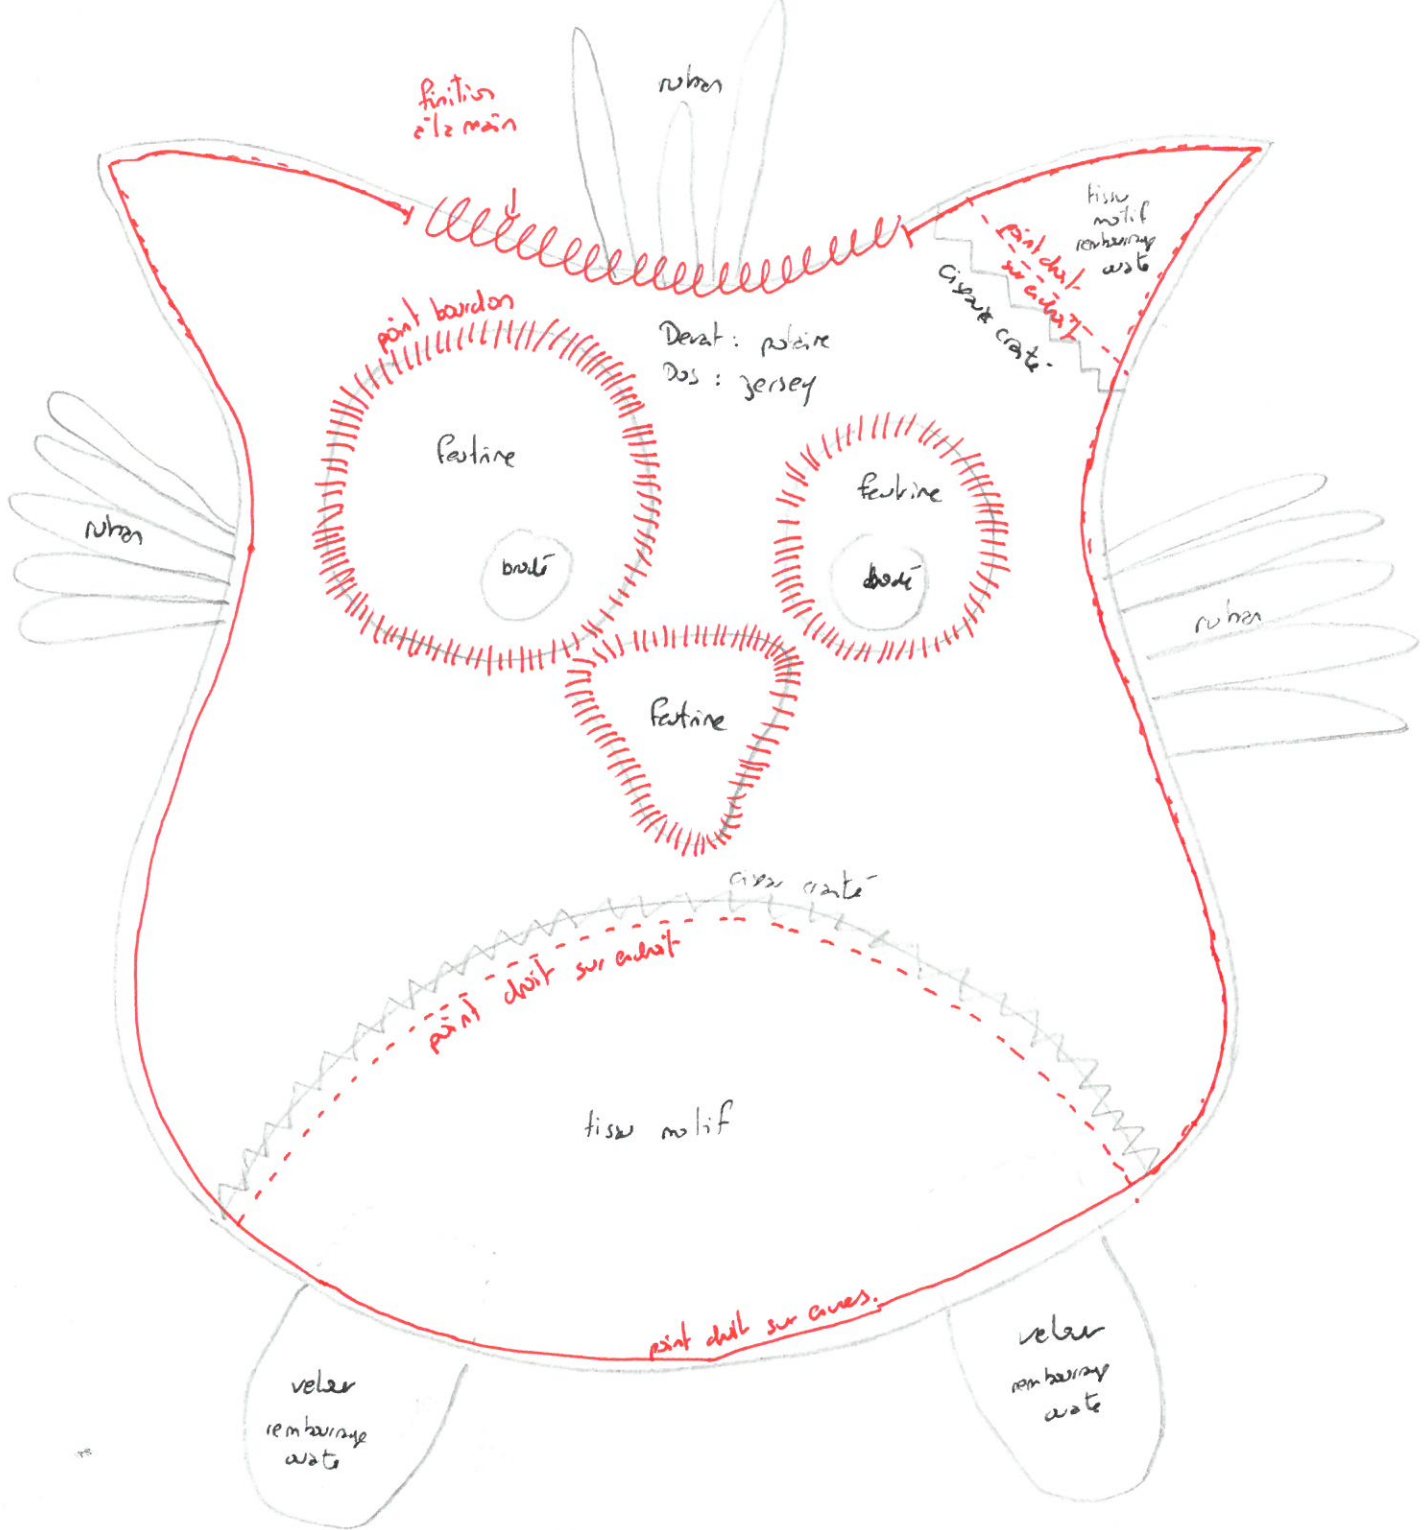 ruban
finition
à la main
tissu
motif
rembourrage
ouaté
point droit
sur endroit
ciseaux cranté.
point bourdon
Devat : polaire
Dos : jersey
feutrine
feutrine
ruban
brodé
brodé
ruban
feutrine
ciseau cranté
point droit sur endroit
tissu motif
point droit sur envers.
velour
rembourrage
ouaté
velour
rembourrage
ouaté